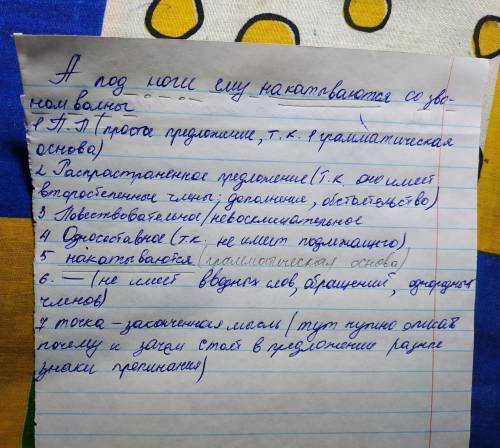 А под ноги ему накатываются со зво-
ном волны
1 П.П (простое предложение, т.к. 1 грамматическая
основа)
2 Распространенное предложение (т.к. оно имеет
второстепенные члены; дополнение, обстоятельство)
3 Повествовательное/невосклицательное
4 Односоставное (т.к. не имеет подлежащего)
5 накатываются (грамматическая основа)
6. — (не имеет вводных слов, обращений, однородных
членов)
7 точка – законченная мысль (тут нужно описать
почему и зачем стоят в предложении разные
знаки препинания)